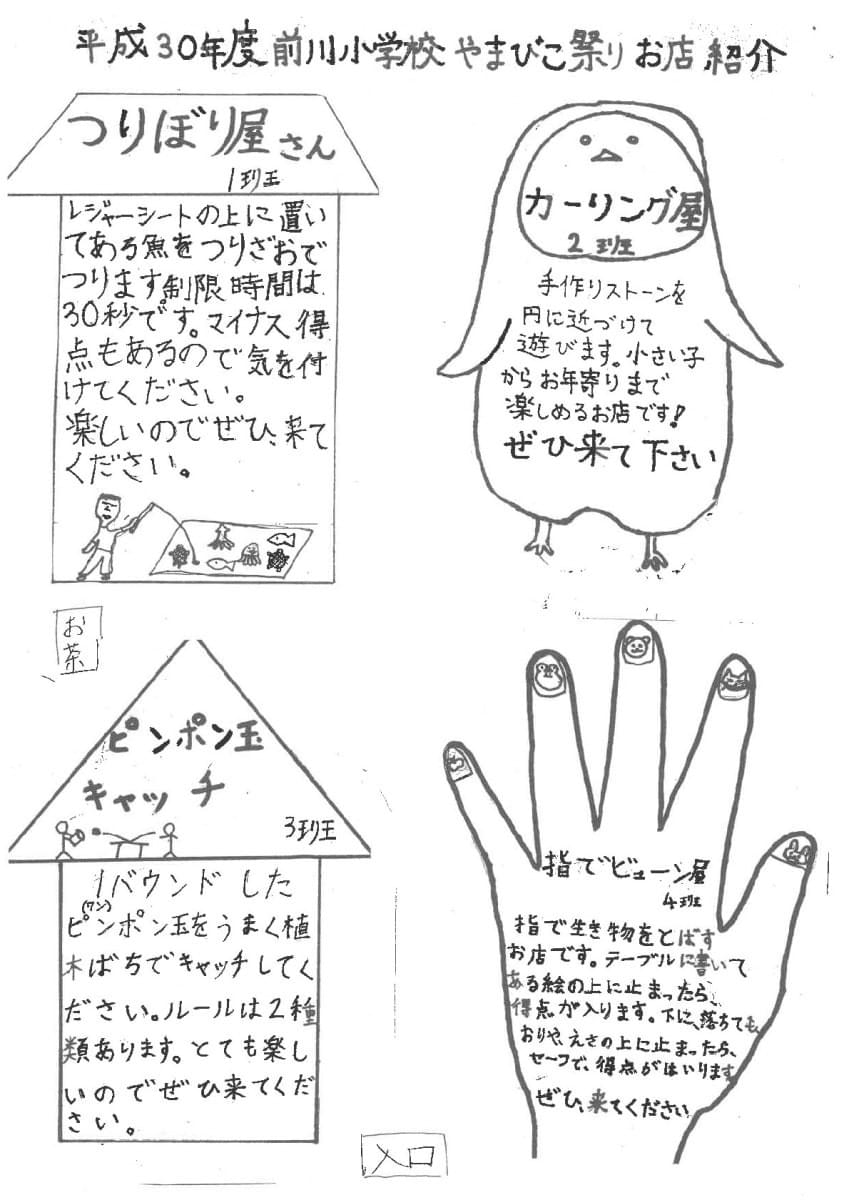 平成30年度 前川小学校 やまびこ祭り お店 紹介
つりぼり屋さん
1班
レジャーシートの上に置い
てある魚をつりざおで
つります。制限時間は
30秒です。マイナス得
点もあるので気を付
けてください。
楽しいのでぜひ、来て
ください。
カーリング屋
2班
手作りストーンを
円に近づけて
遊びます。小さい子
からお年寄りまで
楽しめるお店です!
ぜひ来て下さい
お茶
ピンポン玉
キャッチ
3班
1バウンドした
(ワン)
ピンポン玉をうまく植
木ばちでキャッチしてく
ださい。ルールは2種
類あります。とても楽し
いのでぜひ来てくだ
さい。
指でビューン屋
4班
指で生き物をとばす
お店です。テーブルに書いて
ある絵の上に止まったら、
得点が入ります。下に、落ちても、
おりや、えさの上に止まったら、
セーフで、得点がはいります
ぜひ、来てください
入口